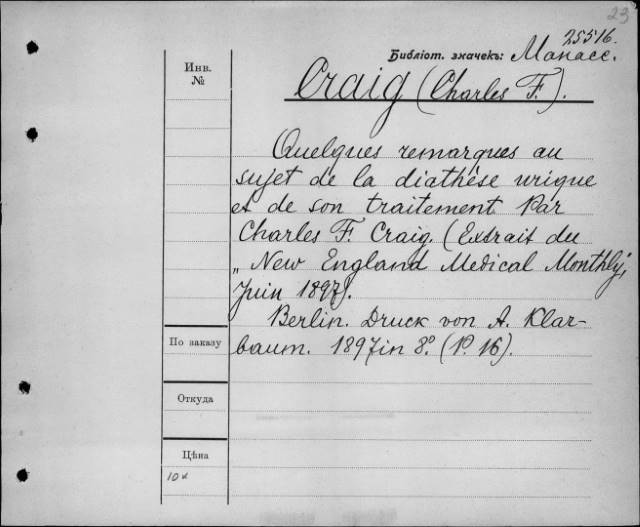 23
25516.
Библіот. значекъ: Манасс.
Инв.
№
Craig (Charles F.).
Quelques remarques au
sujet de la diathèse urique
et de son traitement Par
Charles F. Craig. (Extrait du
„New England Medical Monthly",
Juin 1897).
Berlin. Druck von A. Klar-
baum. 1897 in 8°. (P. 16).
По заказу
Откуда
Цѣна
10к